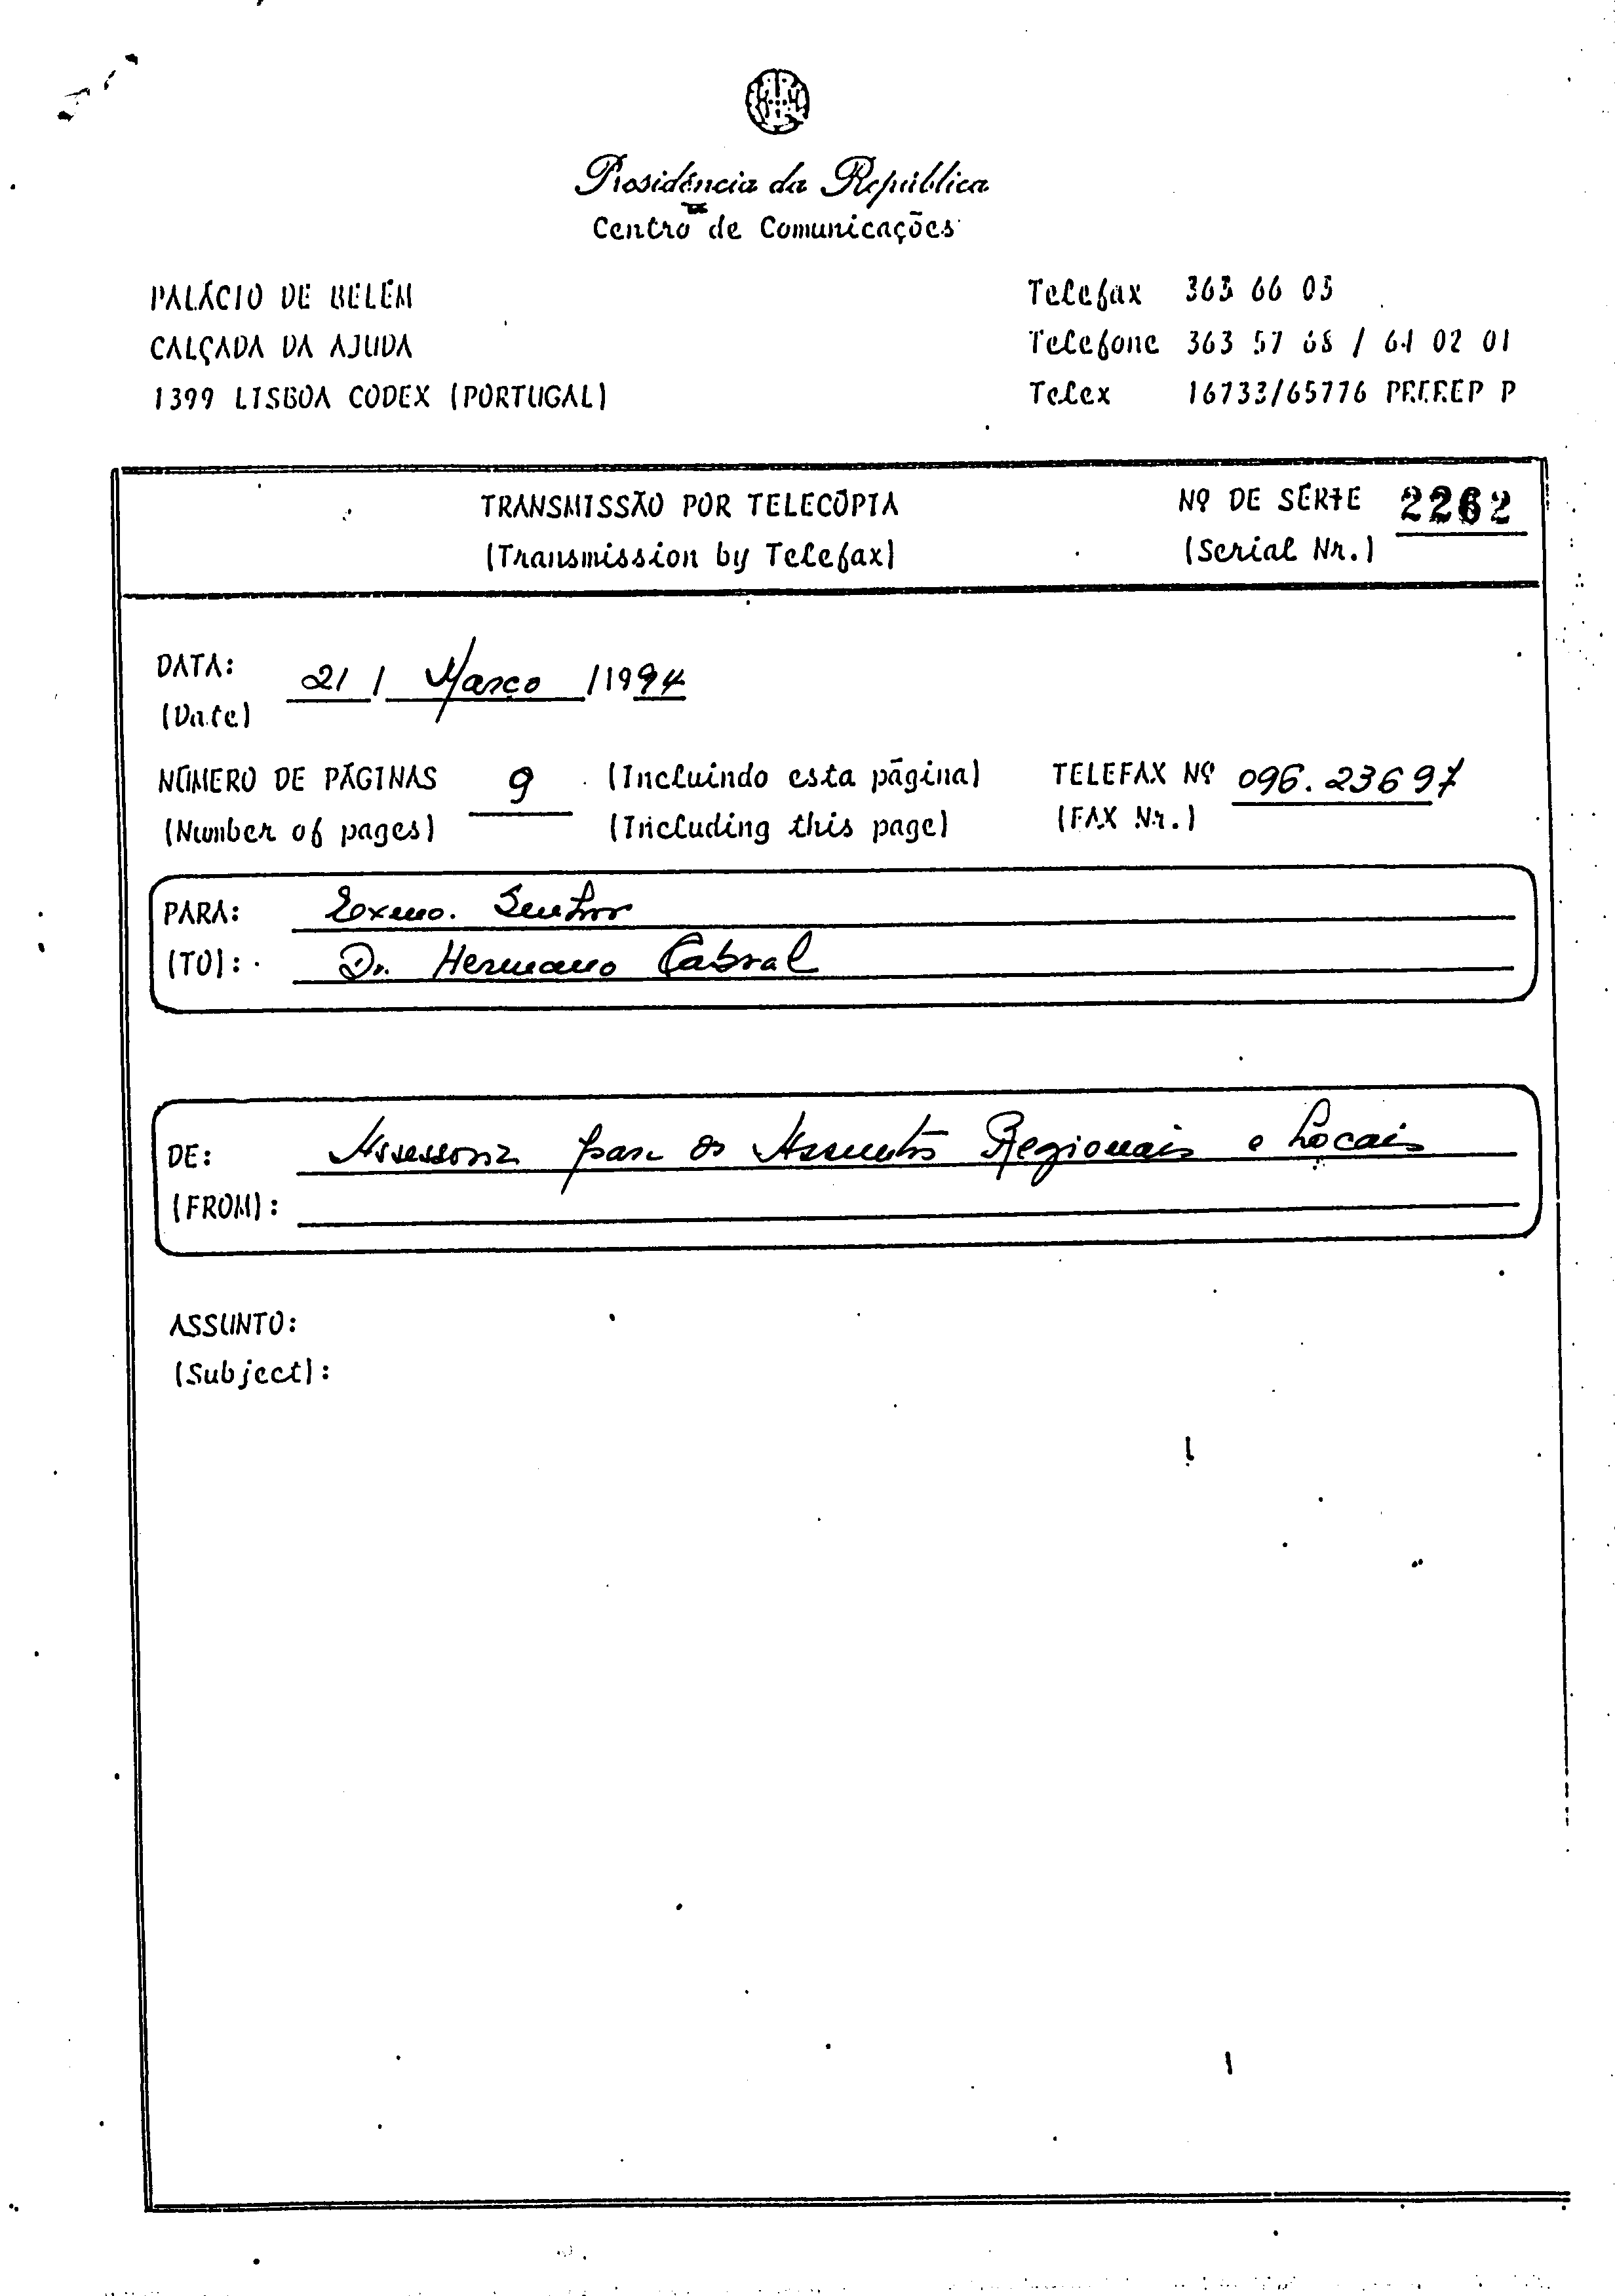 Presidência da República
Centro de Comunicações
PALÁCIO DE BELÉM
CALÇADA DA AJUDA
1399 LISBOA CODEX (PORTUGAL)
Telefax 363 66 03
Telefone 363 57 68 / 64 02 01
Telex 16733/65776 P
TRANSMISSÃO POR TELECÓPIA
(Transmission by Telefax)
Nº DE SÉRIE 2262
(Serial Nr.)
DATA: 21 / Março /1994
(Date)
NÚMERO DE PÁGINAS 9 (Incluindo esta página)
(Number of pages) (Including this page)
TELEFAX Nº 096.23697
(FAX Nr.)
PARA: Exmo. Senhor
(TO): Dr. Hermano Cabral
DE: Assessoria para os Assuntos Regionais e Locais
(FROM):
ASSUNTO:
(Subject):